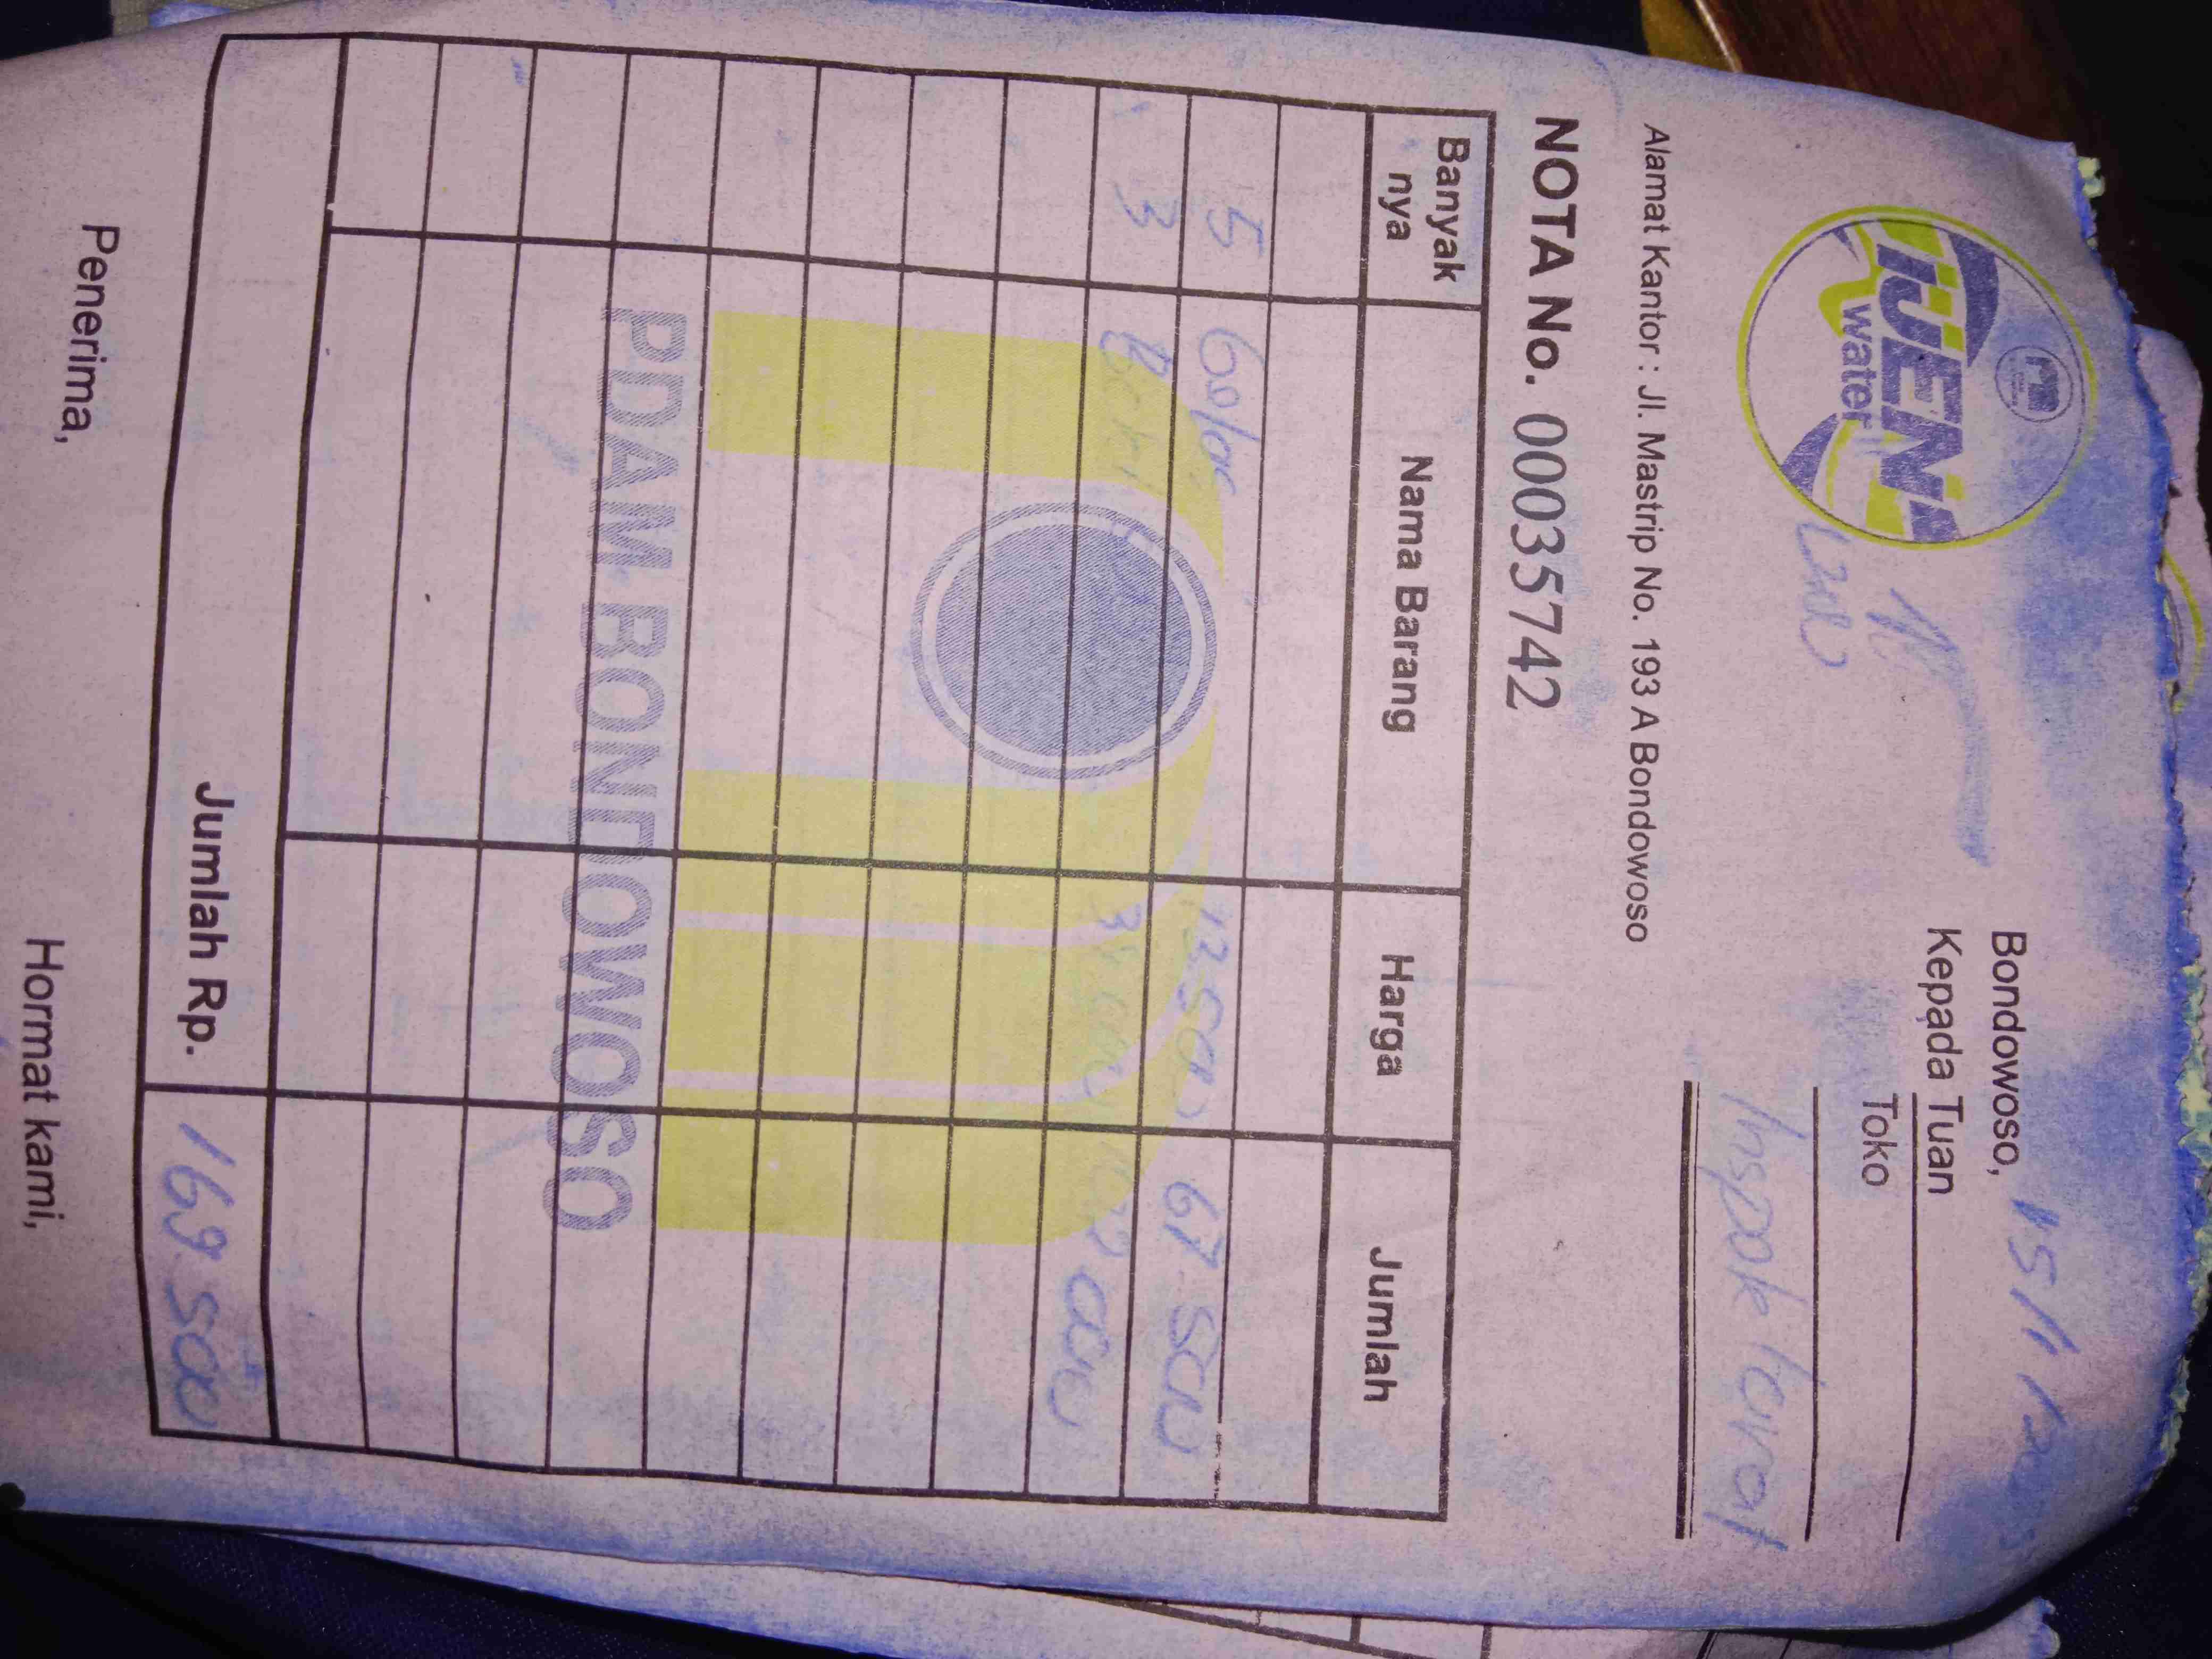 IJEN
water
Bondowoso,
Kepada Tuan
Toko
Inspektorat
Alamat Kantor : Jl. Mastrip No. 193 A Bondowoso
NOTA No. 00035742
Banyak nya Nama Barang Harga Jumlah
5 Gelas 13.500 67.500
3 34.000 102.000
PDAM BONDOWOSO
Jumlah Rp. 169.500
Penerima, Hormat kami,